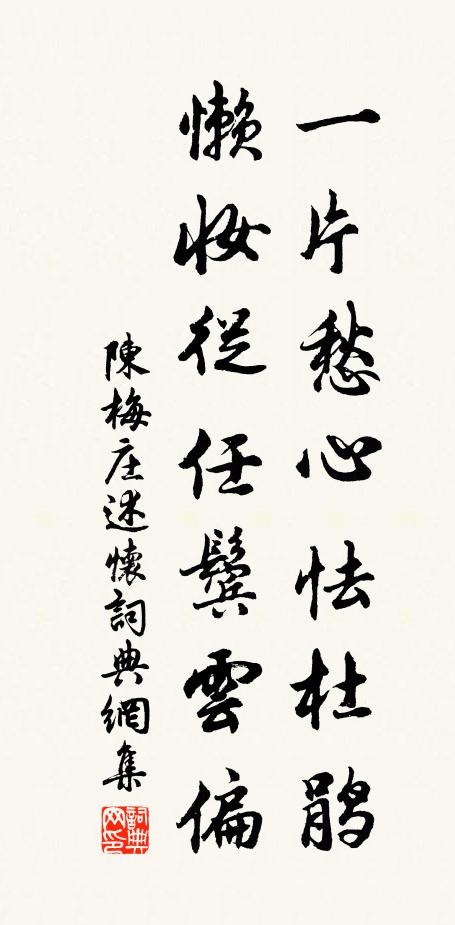 一片愁心怯杜鹃
懒妆從任鬓雲偏
陳梅庄述懷詞典網集
詞典网印